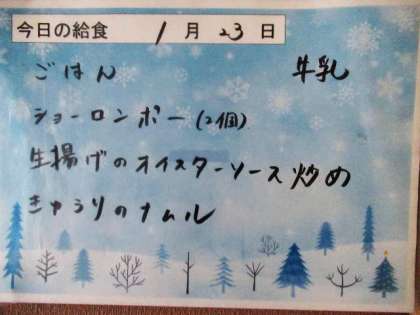 今日の給食 1月23日
ごはん 牛乳
ショーロンポー(2個)
生揚げのオイスターソース炒め
きゅうりのナムル